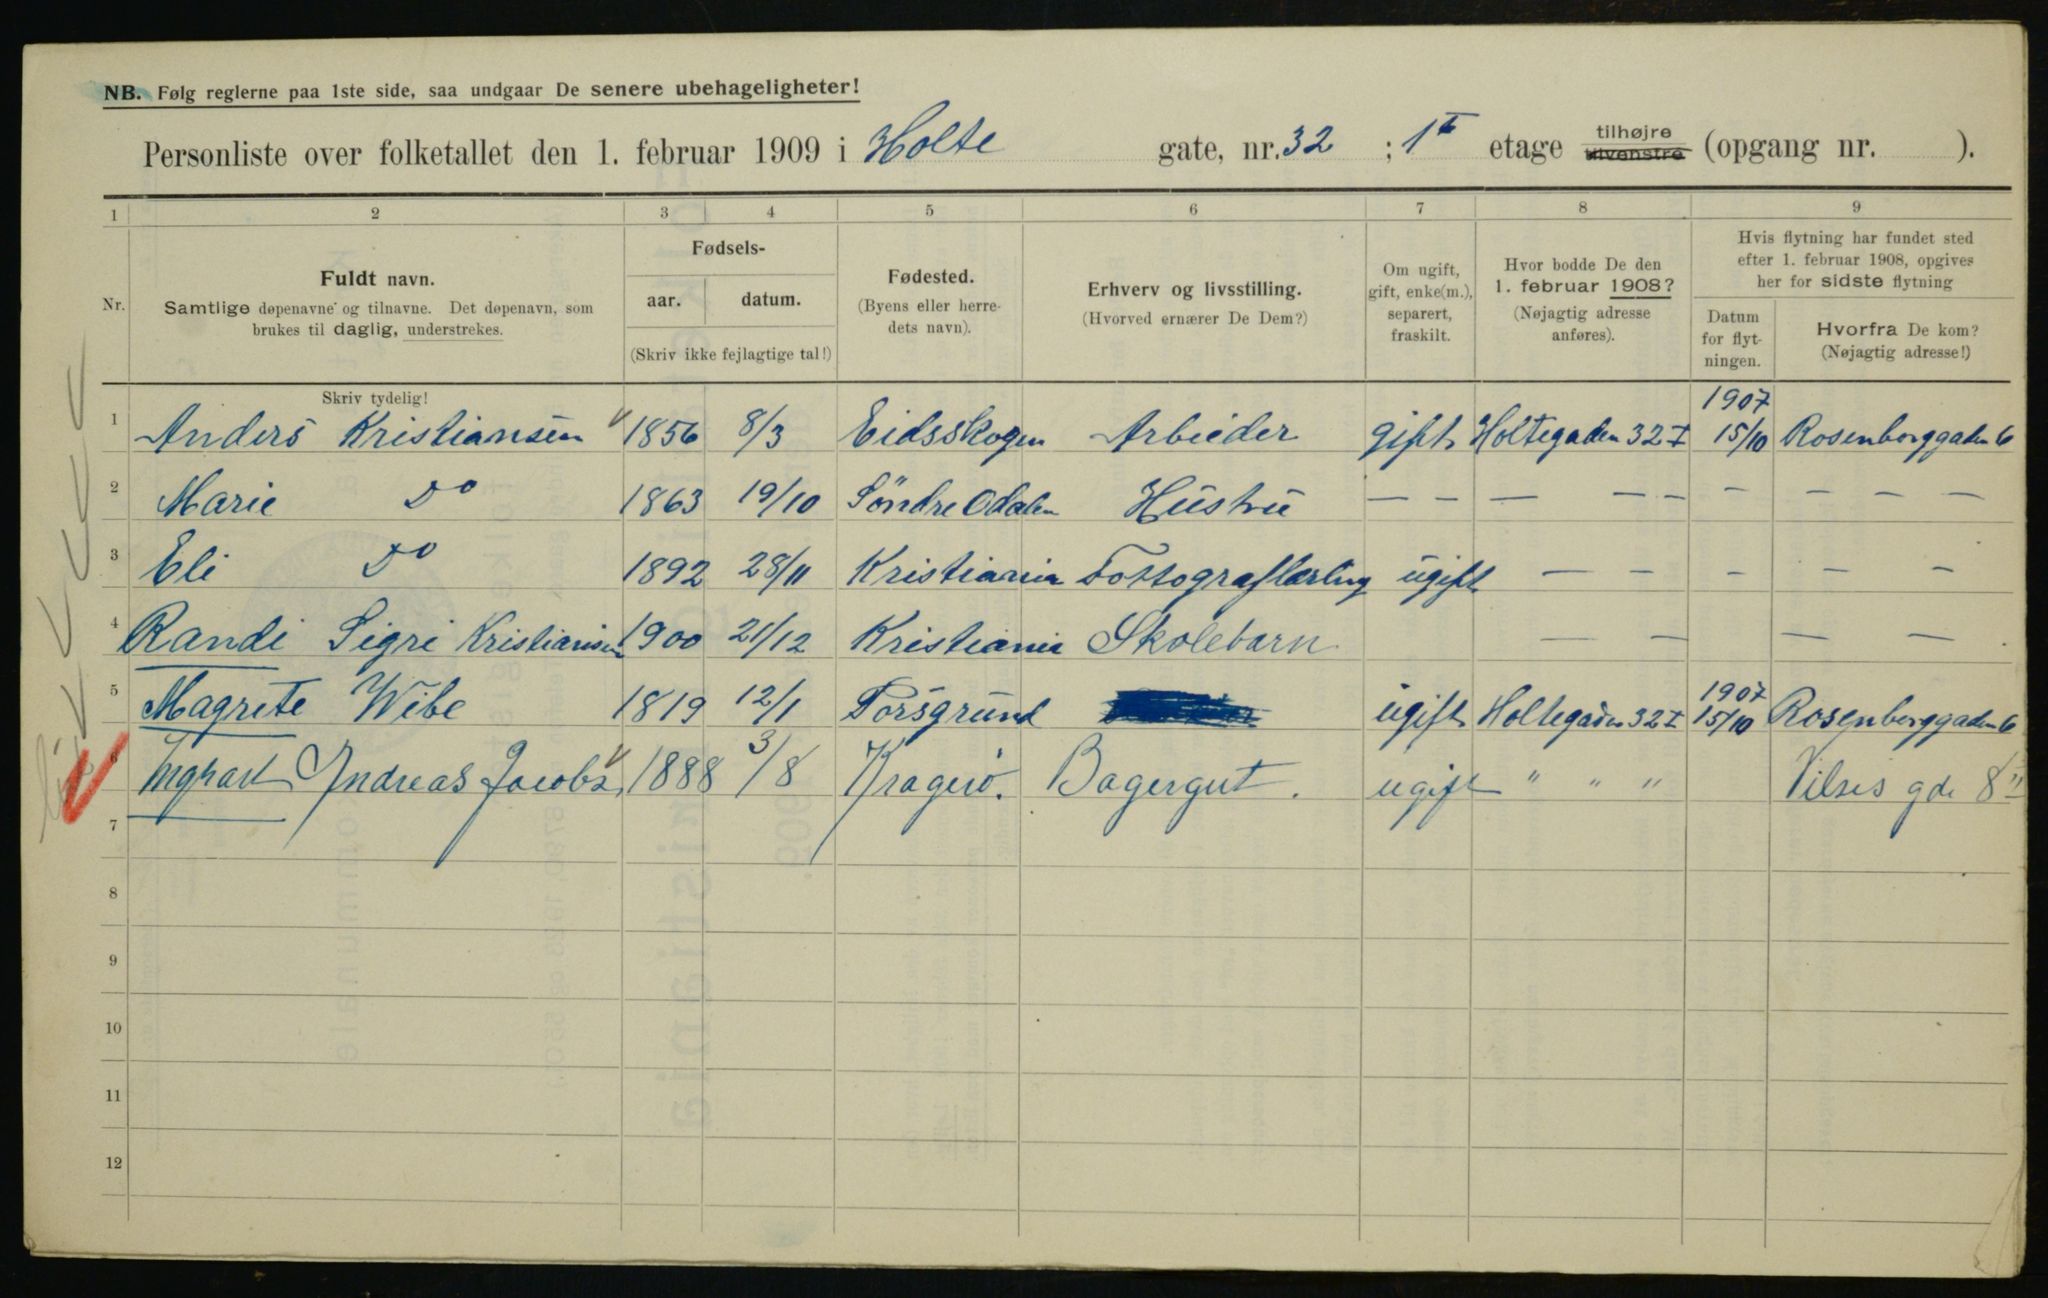 NB. Følg reglerne paa 1ste side, saa undgaar De senere ubehageligheter!
Personliste over folketallet den 1. februar 1909 i Holte gate, nr. 32 ; 1ste etage tilhøjre tilvenstre (opgang nr. ).
1 2 3 4 5 6 7 8 9
Nr.
Fuldt navn.
Samtlige døpenavne og tilnavne. Det døpenavn, som
brukes til daglig, understrekes.
Fødsels-
aar. datum.
(Skriv ikke fejlagtige tal!)
Fødested.
(Byens eller herre-
dets navn).
Erhverv og livsstilling.
(Hvorved ernærer De Dem?)
Om ugift,
gift, enke(m.),
separert,
fraskilt.
Hvor bodde De den
1. februar 1908?
(Nøjagtig adresse
anføres).
Hvis flytning har fundet sted
efter 1. februar 1908, opgives
her for sidste flytning
Datum
for flyt-
ningen.
Hvorfra De kom?
(Nøjagtig adresse!)
Skriv tydelig!
1 Anders Kristiansen 1856 8/3 Eidsskogen Arbieder gift Holtegaden 32 I 1907 15/10 Rosenborggaden 6
2 Marie Do 1863 19/10 Söndre Odalen Hustru — — — — — — — — —
3 Eli Do 1892 28/11 Kristiania Fottograflærling ugift — — — — — —
4 Randi Sigri Kristiansen 1900 21/12 Kristiania Skolebarn — — — —
5 Magrete Wibe 1819 12/1 Porsgrund ugift Holtegaden 32 I 1907 15/10 Rosenborggaden 6
6 Andreas Jacobs 1888 3/8 Kragerö. Bagergut. ugift " " " Vilses gde 8 II
7
8
9
10
11
12